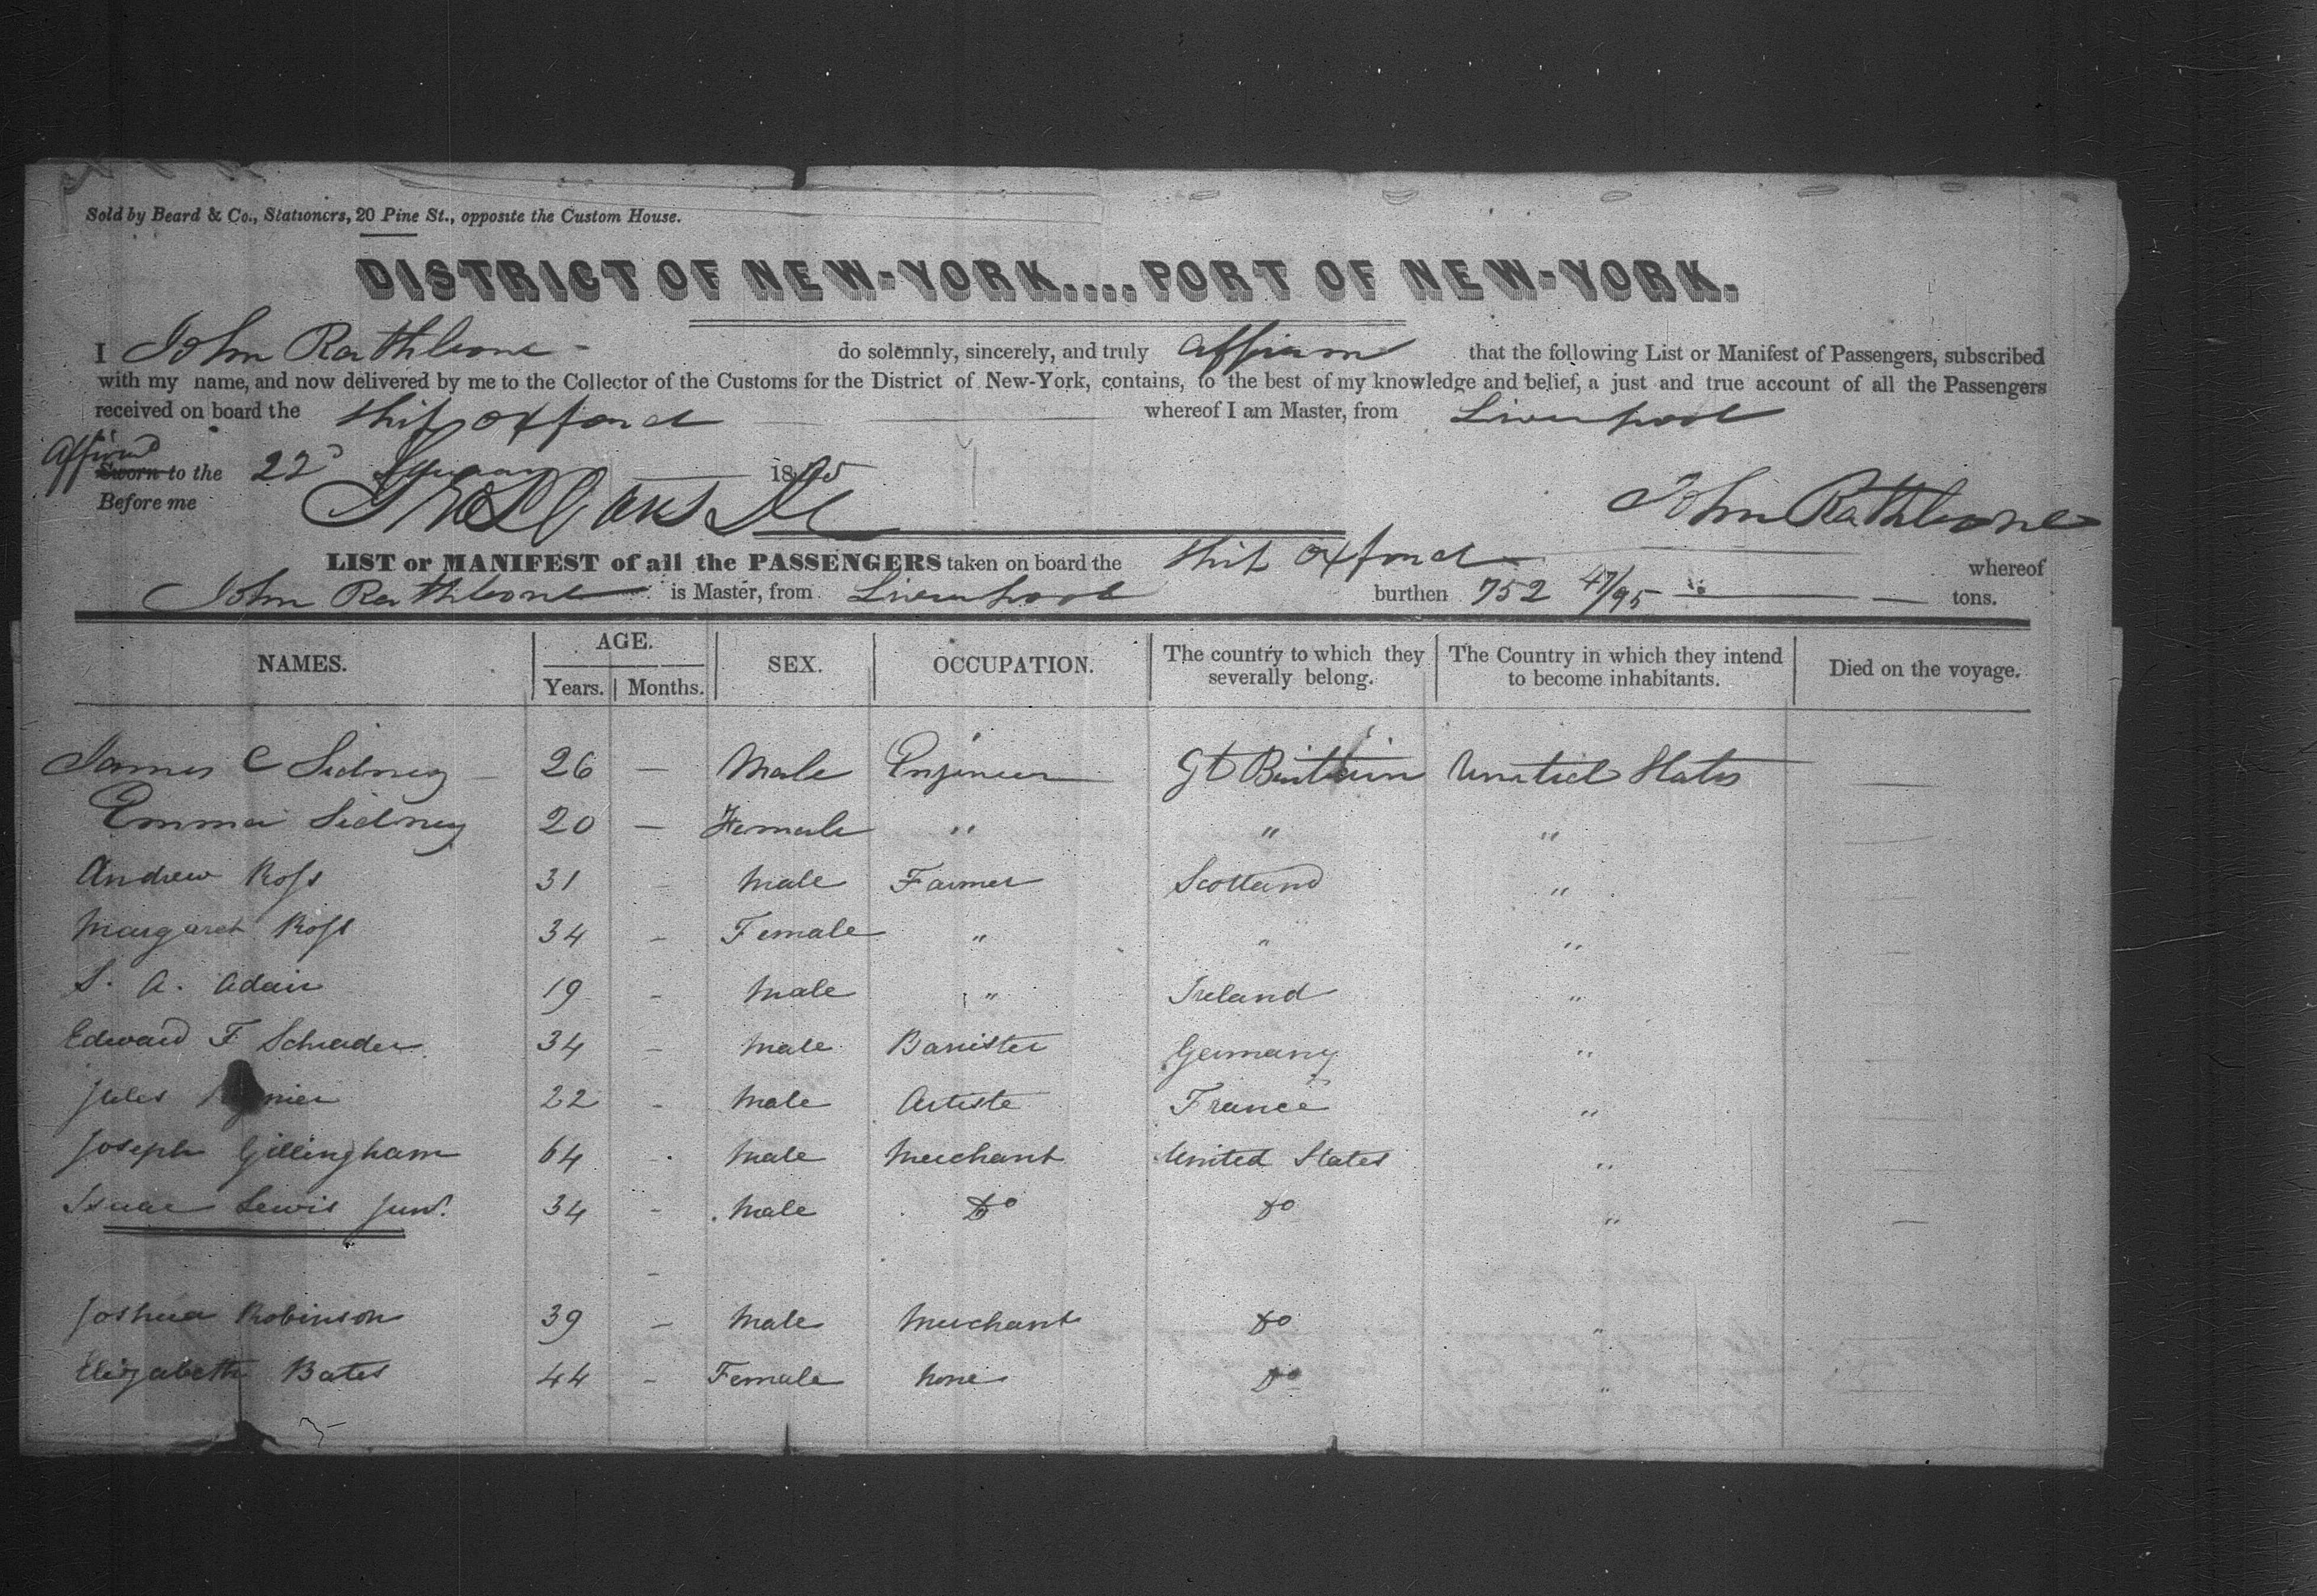 Sold by Beard & Co., Stationers, 20 Pine St., opposite the Custom House.
DISTRICT OF NEW-YORK....PORT OF NEW-YORK.
I John Rathbone - do solemnly, sincerely, and truly affirm that the following List or Manifest of Passengers, subscribed
with my name, and now delivered by me to the Collector of the Customs for the District of New-York, contains, to the best of my knowledge and belief, a just and true account of all the Passengers
received on board the Ship Oxford whereof I am Master, from Liverpool
Affirmd
Sworn to the 22d 1845
Before me
John Rathbone
LIST or MANIFEST of all the PASSENGERS taken on board the Ship Oxford whereof
John Rathbone is Master, from Liverpool burthen 752 47/95 tons.
NAMES. AGE. Years. Months. SEX. OCCUPATION. The country to which they severally belong. The Country in which they intend to become inhabitants. Died on the voyage.
James C Sidney - 26 — Male Engineer Gt Brittain United States —
Emma Sidney 20 — Female " " " —
Andrew Ross 31 - Male Farmer Scotland " —
Margaret Ross 34 - Female " " " —
S. A. Adair 19 - Male " Ireland " —
Edward F Schrader 34 - Male Barrister Germany " —
Jules 22 - Male Artiste France " —
Joseph Gillingham 64 - Male Merchant United States " —
Isaac Lewis Junr. 34 - Male Do Do " —
Joshua Robinson 39 - Male Merchant Do " —
Elizabeth Bates 44 - Female None Do " —